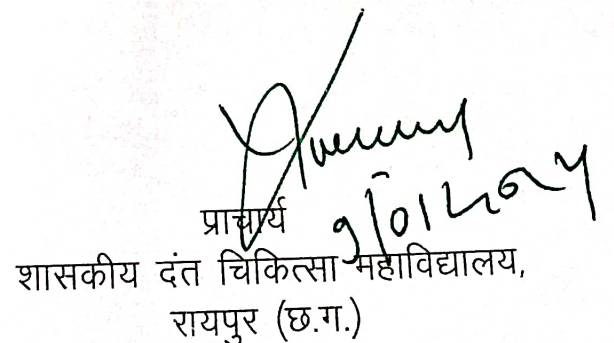 प्राचार्य
शासकीय दंत चिकित्सा महाविद्यालय,
रायपुर (छ.ग.)